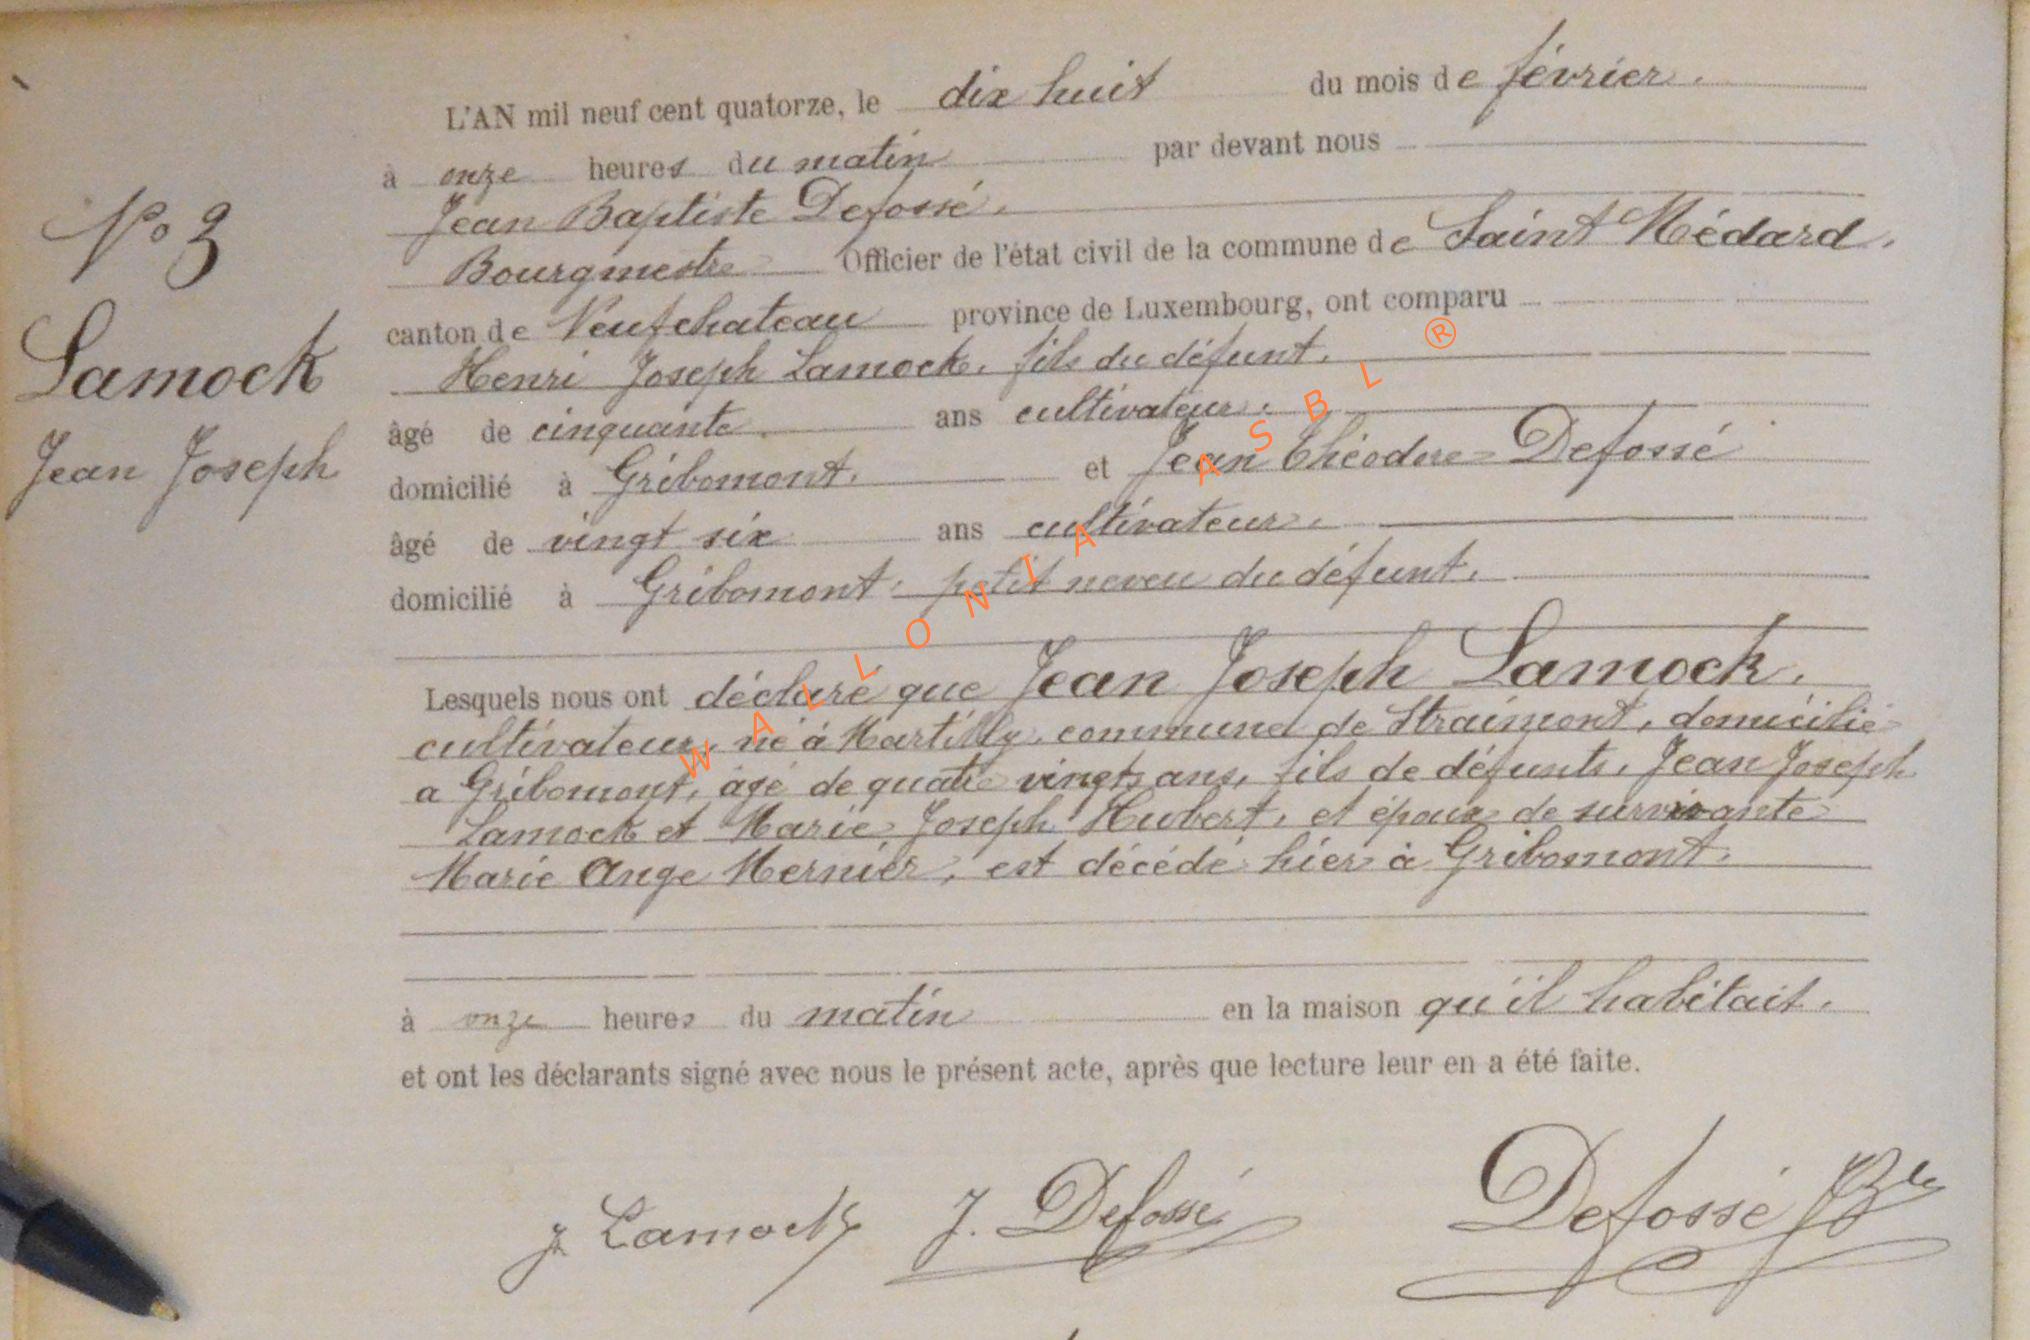 L'AN mil neuf cent quatorze, le dix huit du mois de février.
à onze heures du matin par devant nous
Jean Baptiste Defossé.
N° 3
Bourgmestre Officier de l'état civil de la commune de Saint Médard.
canton de Neufchateau province de Luxembourg, ont comparu
Lamock
Henri Joseph Lamock, fils du défunt.
âgé de cinquante ans cultivateur.
Jean Joseph
domicilié à Gribomont. et Jean Théodore Defossé
âgé de vingt six ans cultivateur.
domicilié à Gribomont. petit neveu du défunt.
Lesquels nous ont déclaré que Jean Joseph Lamock,
cultivateur, né à Martilly, commune de Straimont, domicilié
a Gribomont, âgé de quatre vingts ans, fils de défunts, Jean Joseph
Lamock et Marie Joseph Hubert, et époux de survivante
Marie Ange Mernier, est décédé hier à Gribomont.
à onze heures du matin en la maison qu'il habitait.
et ont les déclarants signé avec nous le présent acte, après que lecture leur en a été faite.
J Lamock J. Defossé Defossé JBte
WALLONIA ASBL ®